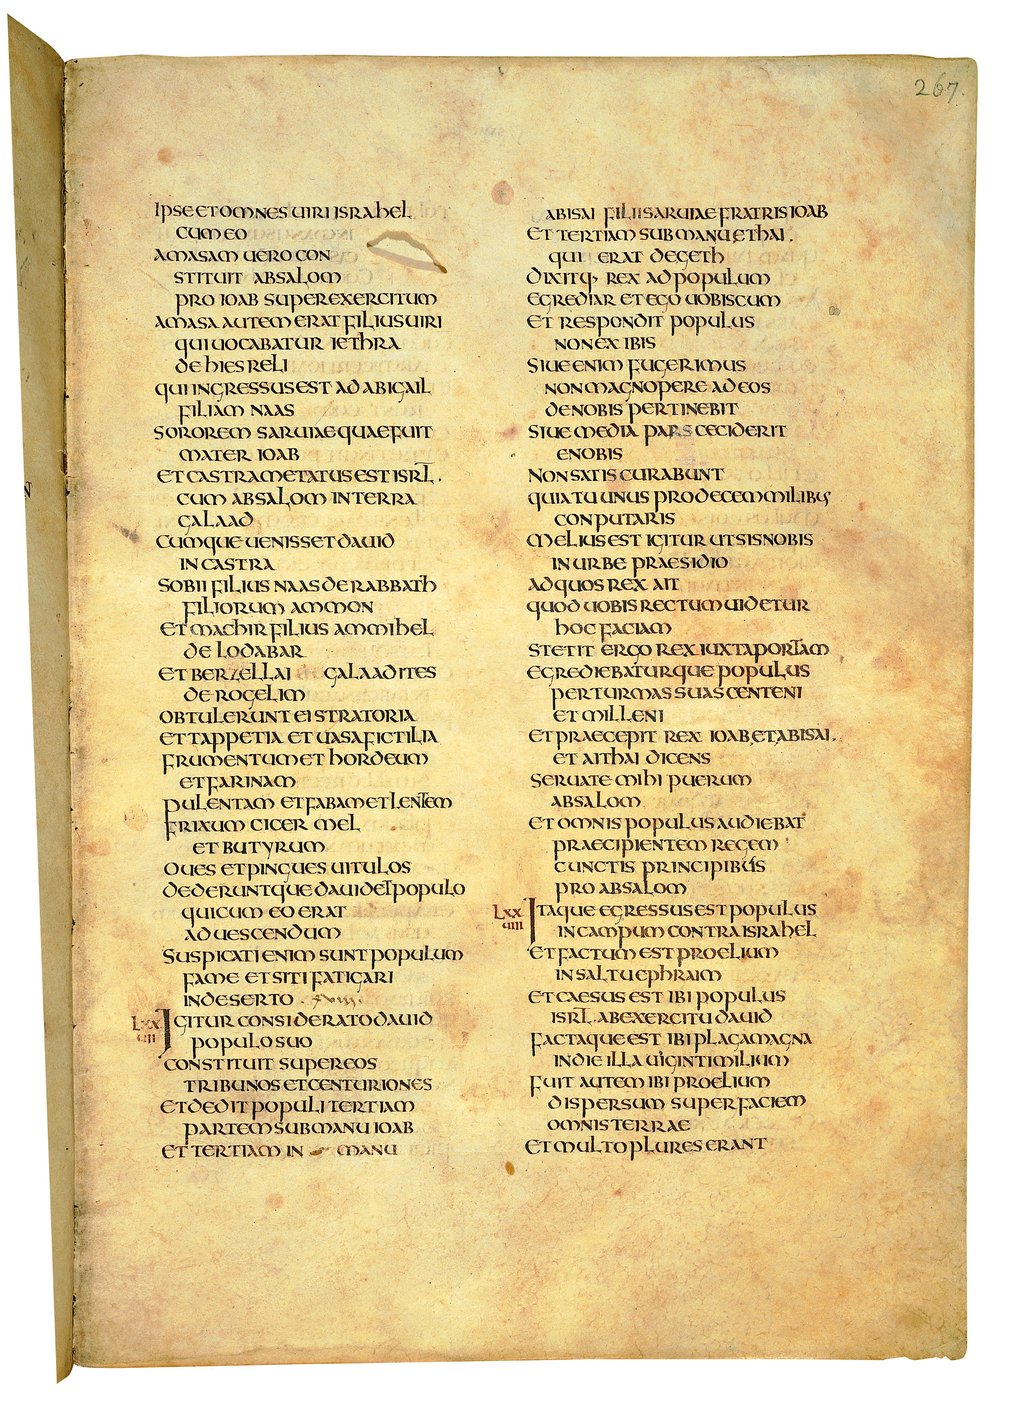 267.
IPSE ET OMNES UIRI ISRAHEL
CUM EO
AMASAM UERO CON
STITUIT ABSALOM
PRO IOAB SUPER EXERCITUM
AMASA AUTEM ERAT FILIUS UIRI
QUI UOCABATUR IETHRA
DE HIESRELI
QUI INGRESSUS EST AD ABIGAIL
FILIAM NAAS
SOROREM SARUIAE QUAE FUIT
MATER IOAB
ET CASTRAMETATUS EST ISRL̄.
CUM ABSALOM IN TERRA
GALAAD
CUMQUE UENISSET DAUID
IN CASTRA
SOBII FILIUS NAAS DE RABBATH
FILIORUM AMMON
ET MACHIR FILIUS AMMIHEL
DE LODABAR
ET BERZELLAI GALAADITES
DE ROGELIM
OBTULERUNT EI STRATORIA
ET TAPPETIA ET UASA FICTILIA
FRUMENTUM ET HORDEUM
ET FARINAM
PULENTAM ET FABAM ET LENTEM
FRIXUM CICER MEL
ET BUTYRUM
OUES ET PINGUES UITULOS
DEDERUNTQUE DAUID ET POPULO
QUI CUM EO ERAT
AD UESCENDUM
SUSPICATI ENIM SUNT POPULUM
FAME ET SITI FATIGARI
IN DESERTO
LXX IGITUR CONSIDERATO DAUID
III POPULO SUO
CONSTITUIT SUPER EOS
TRIBUNOS ET CENTURIONES
ET DEDIT POPULI TERTIAM
PARTEM SUB MANU IOAB
ET TERTIAM IN MANU
ABISAI FILII SARUIAE FRATRIS IOAB
ET TERTIAM SUB MANU ETHAI.
QUI ERAT DE GETH
DIXITQ; REX AD POPULUM
EGREDIAR ET EGO UOBISCUM
ET RESPONDIT POPULUS
NON EXIBIS
SIUE ENIM FUGERIMUS
NON MAGNOPERE AD EOS
DE NOBIS PERTINEBIT
SIUE MEDIA PARS CECIDERIT
E NOBIS
NON SATIS CURABUNT
QUIA TU UNUS PRO DECEM MILIBUS
CONPUTARIS
MELIUS EST IGITUR UT SIS NOBIS
IN URBE PRAESIDIO
AD QUOS REX AIT
QUOD UOBIS RECTUM UIDETUR
HOC FACIAM
STETIT ERGO REX IUXTA PORTAM
EGREDIEBATURQUE POPULUS
PER TURMAS SUAS CENTENI
ET MILLENI
ET PRAECEPIT REX IOAB.ET.ABISAI.
ET AITHAI DICENS
SERUATE MIHI PUERUM
ABSALOM
ET OMNIS POPULUS AUDIEBAT
PRAECIPIENTEM REGEM
CUNCTIS PRINCIPIBUS
PRO ABSALOM
LXX ITAQUE EGRESSUS EST POPULUS
IIII IN CAMPUM CONTRA ISRAHEL
ET FACTUM EST PROELIUM
IN SALTU EPHRAIM
ET CAESUS EST IBI POPULUS
ISRL̄. AB EXERCITU DAUID
FACTAQUE EST IBI PLAGA MAGNA
IN DIE ILLA UIGINTI MILIUM
FUIT AUTEM IBI PROELIUM
DISPERSUM SUPER FACIEM
OMNIS TERRAE
ET MULTO PLURES ERANT